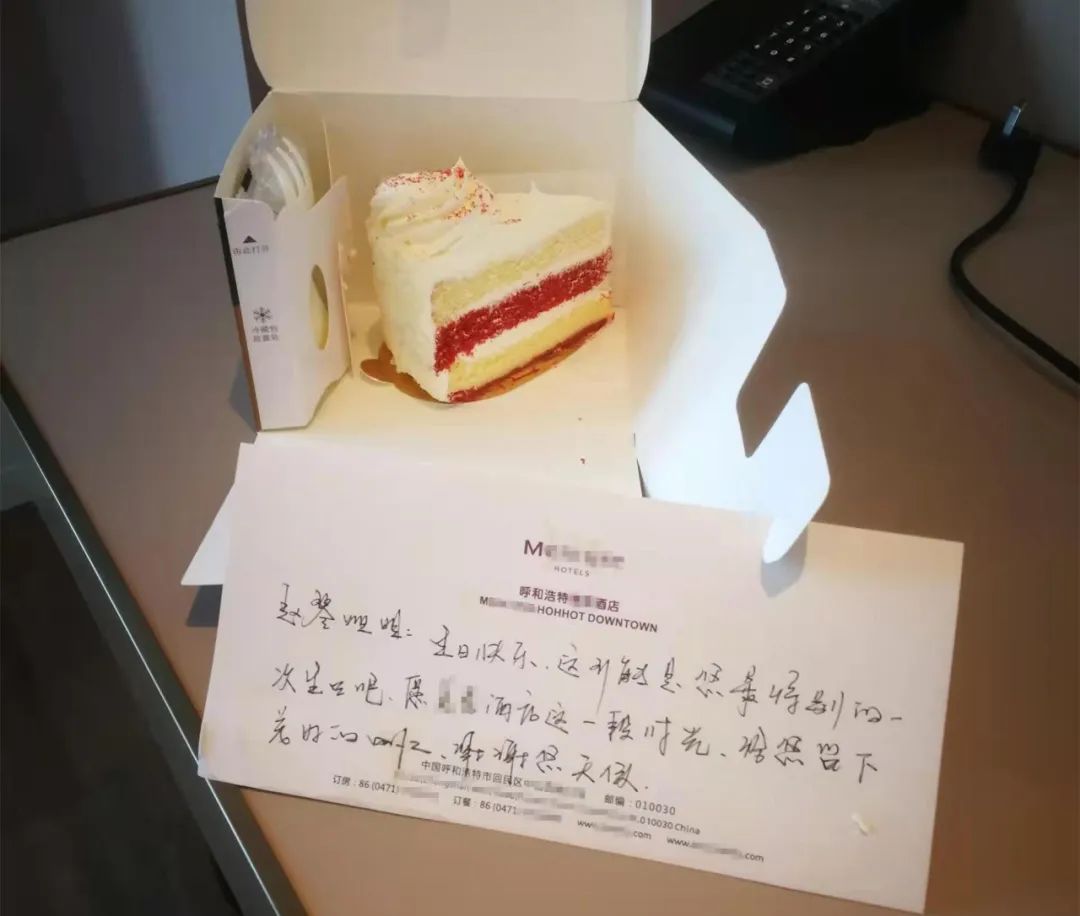 由此打开
冷藏包
装蛋糕
M
HOTELS
呼和浩特 酒店
M HOHHOT DOWNTOWN
赵琴姐姐：生日快乐、这可能是您最特别的一
次生日吧、愿 酒店这一段时光、给您留下
美好的回忆、谢谢您天使.
中国呼和浩特市回民区
邮编：010030
订房：86 (0471)
.010030 China
订餐：86 (0471)
www. .com
www. .com